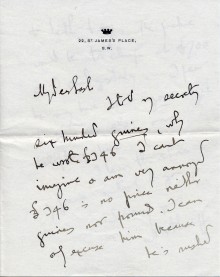 22, ST JAMES'S PLACE,
S.W.
My dear
I told my secretary
six hundred guineas, why
he wrote £346 I can't
imagine & am very annoyed
£346 is no price neither
guineas nor pounds. I can
only excuse him because
he's